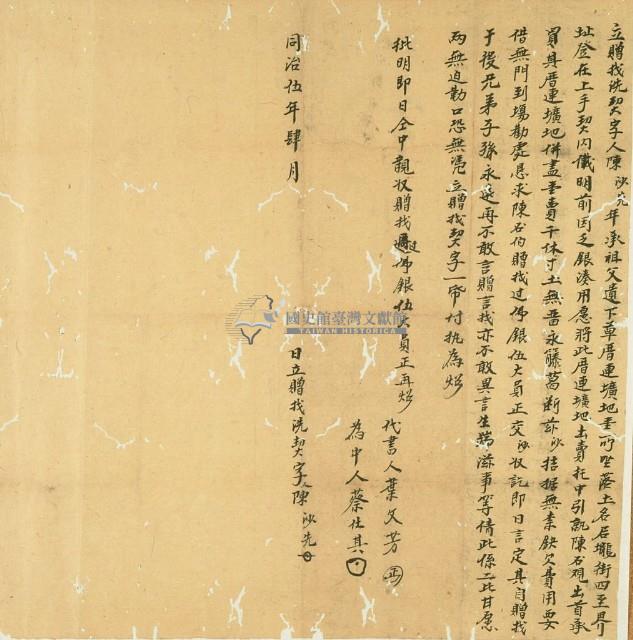 立贈找洗契字人陳沙先年承祖父遺下草厝連壙地壹所坐落土名居壠街四至界
址登在上手契內儎明前因乏銀湊用愿將此厝連壙地出賣托中引就陳石硯出首承
買其厝連壙地併盡壹賣千休寸土無留永籐葛斷茲沙拮据無柰缺欠費用要
借無門到塲勸處恳求陳石伯贈找过佛銀伍大員正交沙收訖即日言定其自贈找
于後兄弟子孫永遠再不敢言贈言找亦不敢異言生端滋事等情此係二比甘愿
両無迫勒口恐無凴立贈找契字一帋付执為炤
批明即日仝中親收贈找過佛銀伍大員正再炤
代書人葉文芳
為中人蔡仕其
同治伍年肆月
日立贈找洗契字人陳沙先
國史館臺灣文獻館
TAIWAN HISTORICA